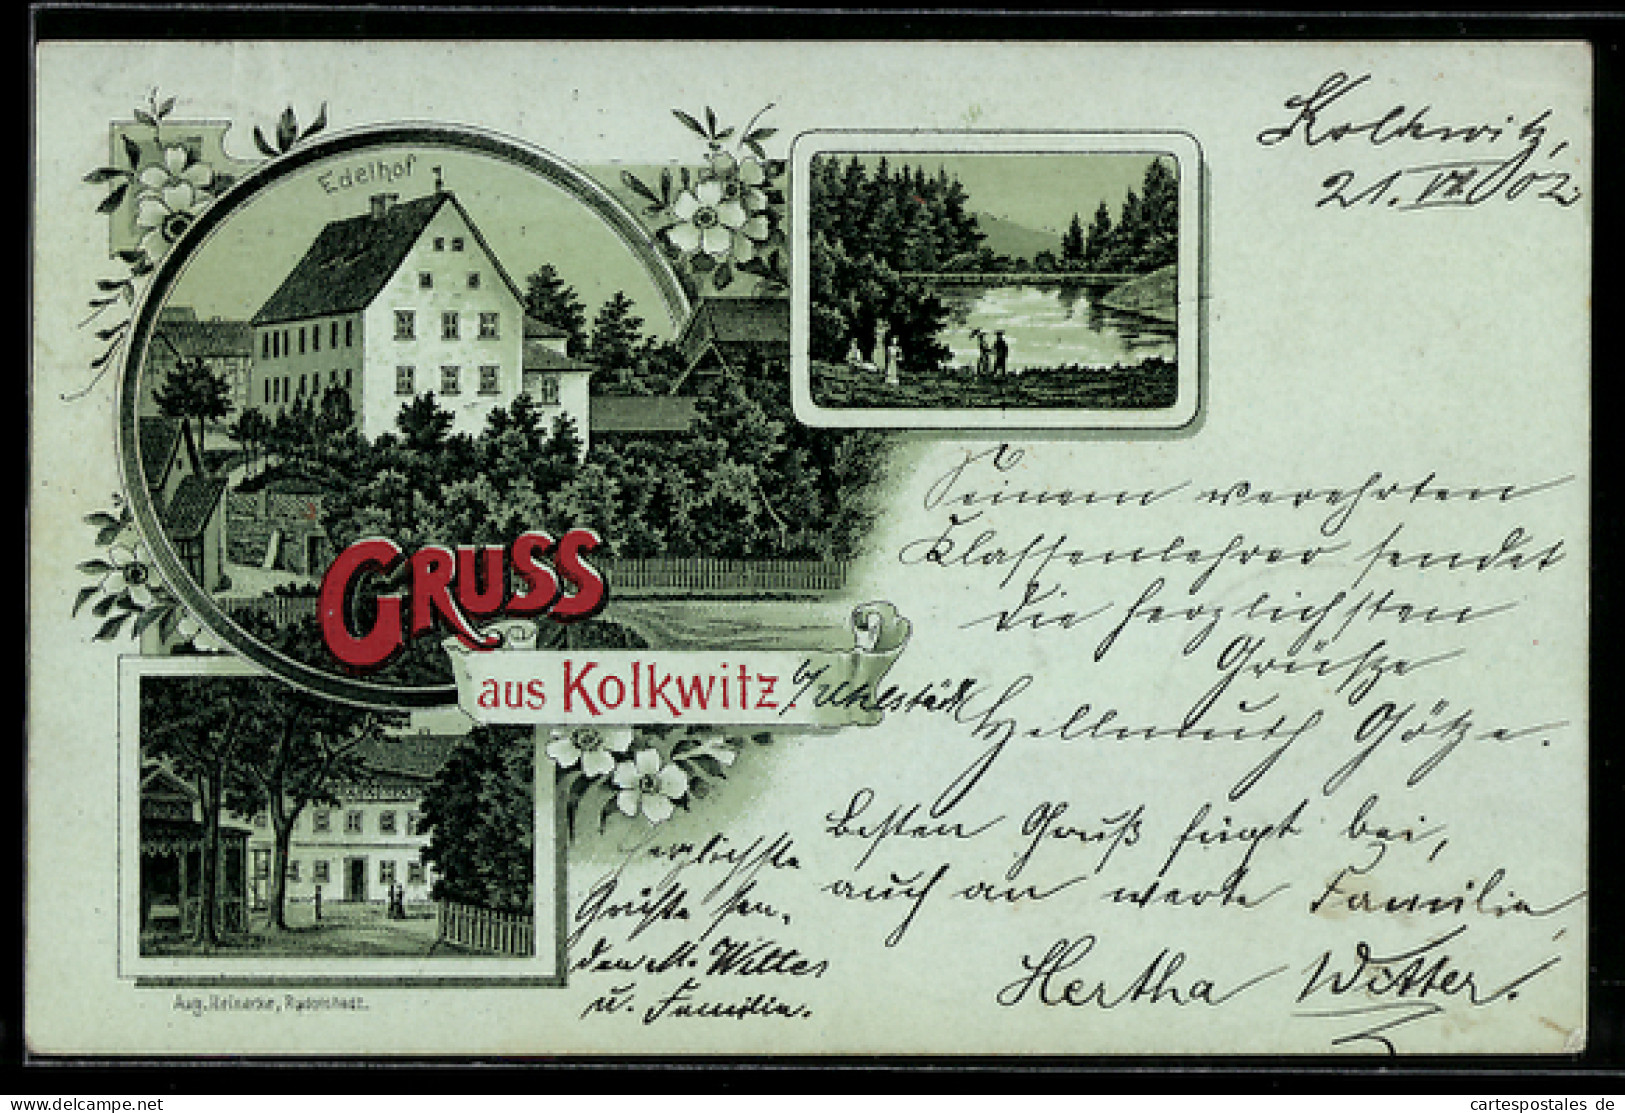 Kolkwitz,
21. VII 02.
Edelhof
GRUSS
aus Kolkwitz
b/Uhlstädt
Seinem verehrten
Klassenlehrer sendet
die herzlichsten
Grüße
Hellmuth Götze.
Besten Gruß fügt bei,
auch an werte Familie,
Hertha Witter.
Herzlichste
Grüße sen-
den A. Witter
u. Familie.
Aug. Reinecke, Rudolstadt.
delcampe.net
cartespostales de